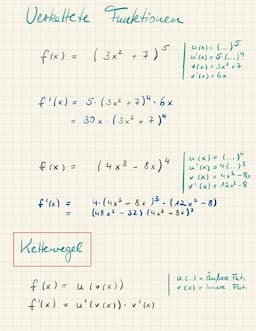 Verkettete Funktionen
f(x) = (3x² + 7)⁵
u(x) = (...)⁵
u'(x) = 5·(...)⁴
v(x) = 3x² + 7
v'(x) = 6x
f'(x) = 5·(3x² + 7)⁴ · 6x
= 30x · (3x² + 7)⁴
f(x) = (4x³ - 8x)⁴
u(x) = (...)⁴
u'(x) = 4(...)³
v(x) = 4x³ - 8x
v'(x) = 12x² - 8
f'(x) = 4·(4x³ - 8x)³ · (12x² - 8)
= (48x² - 32) (4x³ - 8x)³
Kettenregel
f(x) = u(v(x))
f'(x) = u'(v(x)) · v'(x)
u(...) = äußere Fkt.
v(x) = innere Fkt.